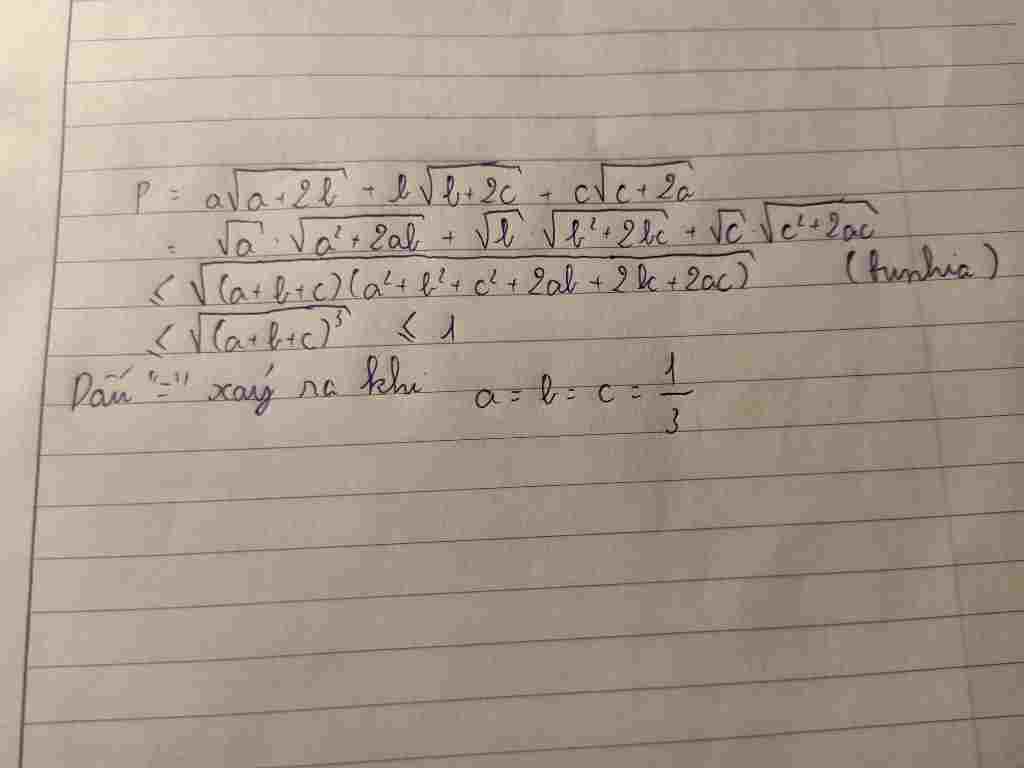 P = a√(a+2b) + b√(b+2c) + c√(c+2a)
= √a · √(a²+2ab) + √b · √(b²+2bc) + √c · √(c²+2ac)
≤ √((a+b+c)(a²+b²+c²+2ab+2bc+2ac)) (bunhia)
≤ √((a+b+c)³) ≤ 1
Dấu "=" xảy ra khi a = b = c = 1/3